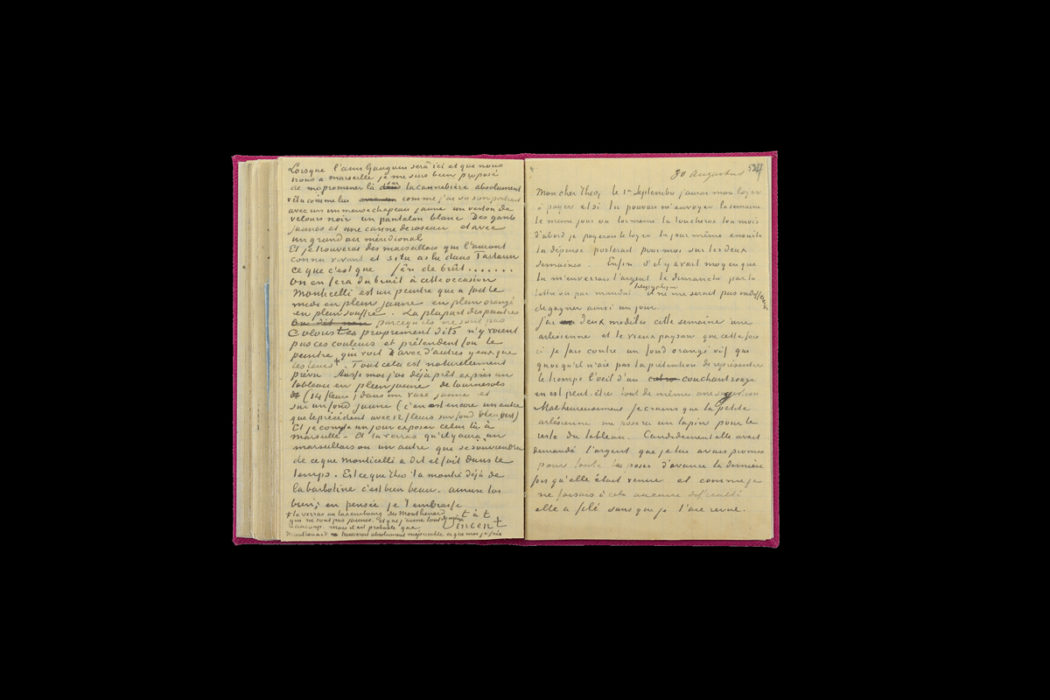 Lorsque l'ami Gauguin sera ici et que nous
irons a marseille je me suis bien proposé
de m'y promener là dans la cannebière absolument
vêtu comme lui comme j'ai vu son portrait
avec un immense chapeau jaune un veston de
velours noir un pantalon blanc des gants
jaunes et une canne de roseau et avec
un grand air méridional
Et je trouverai des marseillais qui l'auront
connu vivant et si tu as lu dans Tartarin
ce que c'est que fén dè brût.......
On en fera du bruit à cette occasion
Monticelli est un peintre qui a fait le
midi en plein jaune en plein orangé
en plein souffre. La plupart des peintres
parcequ'ils ne sont pas
Coloristes proprement dits n'y voient
pas ces couleurs et prétendent fou le
peintre qui voit avec d'autres yeux que
les leurs +. Tout cela est naturellement
prévu. Aussi moi j'ai déjà prêt exprès un
tableau en plein jaune de tournesols
(14 fleurs) dans un vase jaune et
sur un fond jaune (c'en est encore un autre
que le précédent avec 12 fleurs sur fond bleu vert)
Et je compte un jour exposer celui là à
Marseille. Et tu verras qu'il y aura un
marseillais ou un autre qui se souviendra
de ce que Monticelli a dit et fait dans le
temps. Est ce que Theo t'a montré déjà de
la barbotine c'est bien beau. amuse toi
bien; en pensée je t'embrasse
t. à t.
Vincent
+ tu verras au Luxembourg des Montenard
qui ne sont pas jaunes. Et que j'aime tout de même
beaucoup. mais il est probable que
Montenard trouverait absolument impossible ce que moi je fais
30 Augustus
Mon cher Theo, le 1er Septembre j'aurai mon loyer
à payer et si tu pouvais m'envoyer la semaine
le même jour où toi même tu toucheras ton mois
d'abord je payerais le loyer le jour même ensuite
la dépense porterait pour moi sur les deux
semaines. Enfin s'il y avait moyen que
tu m'enverrais l'argent le dimanche par la
lettre ou par mandat télégraphique il ne me serait pas indifférent
de gagner ainsi un jour.
j'ai deux modèles cette semaine une
arlésienne et le vieux paysan que cette fois
ci je fais contre un fond orangé vif qui
quoiqu'il n'aie pas la prétention de représenter
le trompe l'oeil d'un couchant rouge
en est peut être tout de même une suggestion
Malheureusement je crains que la petite
arlésienne me posera un lapin pour le
reste du tableau. Candidement elle avait
demandé l'argent que je lui avais promis
pour toutes les poses d'avance la dernière
fois qu'elle était venue et comme je
ne faisais à cela aucune difficulté
elle a filé sans que je l'aie revue.